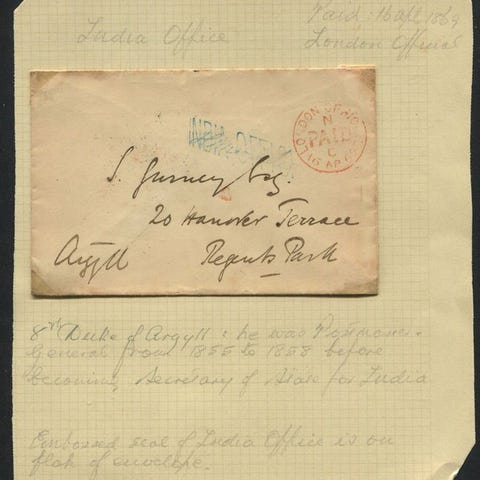 India Office
Paid: 16 Apl 1869
London Official
INDIA OFFICE
LONDON OFFICIAL
N
PAID
C
16 AP 69
S. Gurney Esq.
20 Hanover Terrace
Regents Park
Argyll
8th Duke of Argyll: he was Postmaster-
General from 1855 to 1858 before
becoming Secretary of State for India
Embossed seal of India Office is on
flap of envelope.